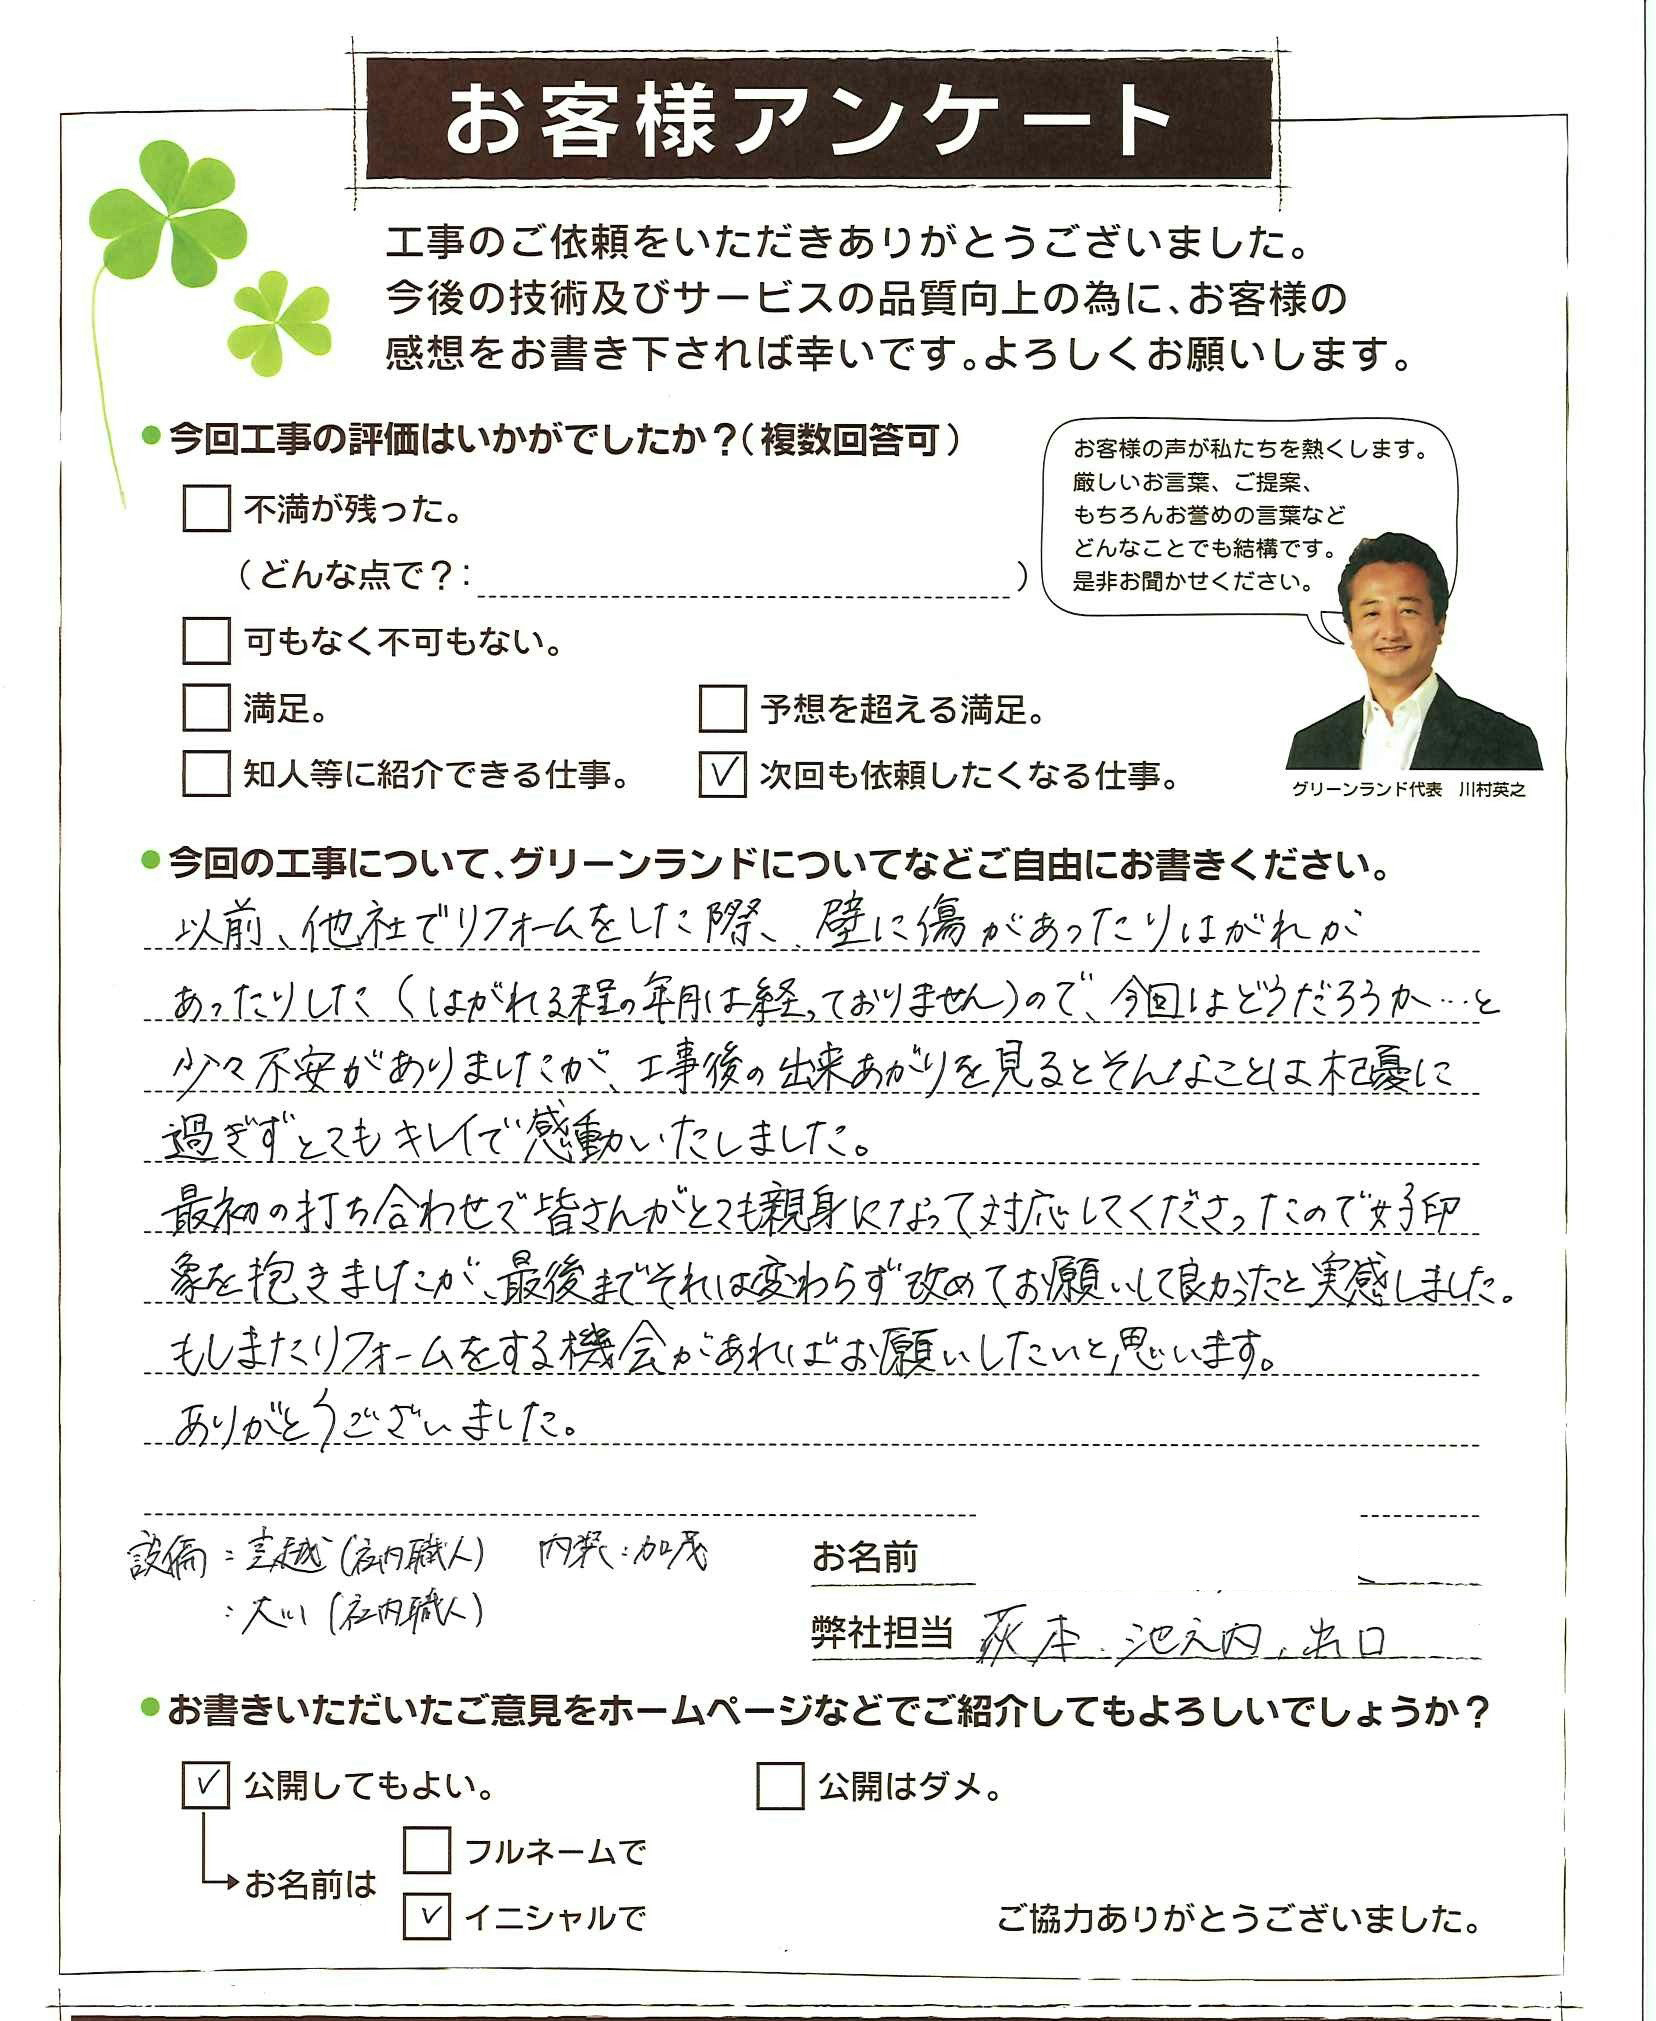 お客様アンケート
工事のご依頼をいただきありがとうございました。
今後の技術及びサービスの品質向上の為に、お客様の
感想をお書き下されば幸いです。よろしくお願いします。
●今回工事の評価はいかがでしたか？（複数回答可）
不満が残った。
（どんな点で？：　）
可もなく不可もない。
満足。
予想を超える満足。
知人等に紹介できる仕事。
✓ 次回も依頼したくなる仕事。
お客様の声が私たちを熱くします。
厳しいお言葉、ご提案、
もちろんお誉めの言葉など
どんなことでも結構です。
是非お聞かせください。
グリーンランド代表　川村英之
●今回の工事について、グリーンランドについてなどご自由にお書きください。
以前、他社でリフォームをした際、壁に傷があったりはがれが
あったりした（はがれる程の年月は経っておりません）ので、今回はどうだろうか…と
少々不安がありましたが、工事後の出来あがりを見るとそんなことは杞憂に
過ぎずとてもキレイで感動いたしました。
最初の打ち合わせで皆さんがとても親身になって対応してくださったので好印
象を抱きましたが、最後までそれは変わらず改めてお願いして良かったと実感しました。
もしまたリフォームをする機会があればお願いしたいと思います。
ありがとうございました。
設備：（社内職人）　内装：加茂
：大川（社内職人）
お名前
弊社担当 荻本、池之内、出口
●お書きいただいたご意見をホームページなどでご紹介してもよろしいでしょうか？
✓ 公開してもよい。
公開はダメ。
お名前は
フルネームで
✓ イニシャルで
ご協力ありがとうございました。